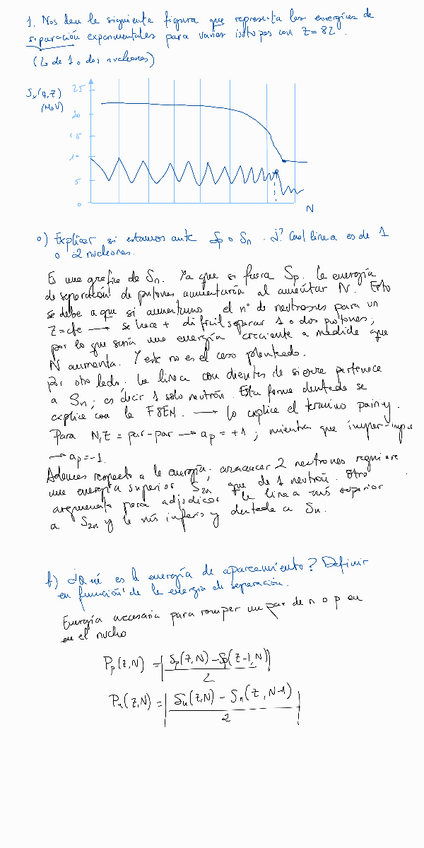 1. Nos dan la siguiente figura que representa las energías de
separación experimentales para varios isótopos con Z=82.
(Lo de 1 o dos nucleones)
Sx(A,Z)
(MeV)
25
20
15
10
5
0
N
a) Explicar si estamos ante Sp o Sn. ¿? Cuál linea es de 1
o 2 nucleones.
Es una grafica de Sn. Ya que si fuera Sp. la energía
de separación de protones aumentaría al aumentar N. Esto
se debe a que si aumentamos el nº de neutrones para un
Z=cte → se hace + difícil separar 1 o dos protones,
por lo que sería una energía creciente a medida que
N aumenta. Y este no es el caso planteado.
Por otro lado. La linea con dientes de sierra pertenece
a Sn; es decir 1 solo neutrón. Esta forma dentada se
explica con la FSEM. → lo explica el termino pairing.
Para N,Z = par-par → ap = +1 ; mientras que impar-impar
→ ap=-1.
Ademas respecto a la energía. arrancar 2 neutrones requiere
una energía superior S2n que de 1 neutrón. Otro
argumento para adjudicar la linea más superior
a S2n y la más inferior y dentada a Sn.
b) ¿Qué es la energía de apareamiento? Definir
en función de la energía de separación.
Energía necesaria para romper un par de n o p en
en el nucleo
Pp(Z,N) = | Sp(Z,N) - Sp(Z-1,N) / 2 |
Pn(Z,N) = | Sn(Z,N) - Sn(Z,N-1) / 2 |